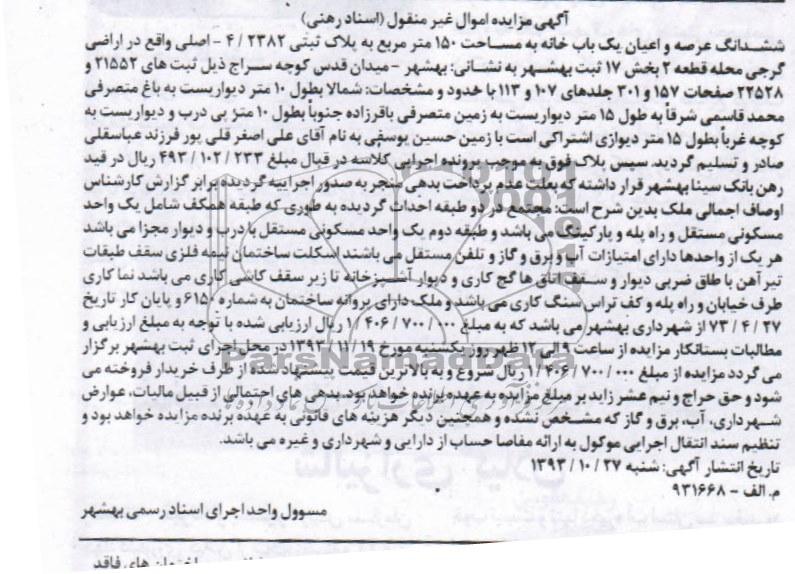 آگهی مزایده اموال غیر منقول (اسناد رهنی)
ششدانگ عرصه و اعیان یک باب خانه به مساحت ۱۵۰ متر مربع به پلاک ثبتی ۲۳۸۲ / ۴ - اصلی واقع در اراضی
گرجی محله قطعه ۲ بخش ۱۷ ثبت بهشهر به نشانی: بهشهر - میدان قدس کوچه سراج ذیل ثبت های ۲۱۵۵۲ و
۲۲۵۲۸ صفحات ۱۵۷ و ۳۰۱ جلدهای ۱۰۷ و ۱۱۳ با حدود و مشخصات: شمالا بطول ۱۰ متر دیواریست به باغ متصرفی
محمد قاسمی شرقاً به طول ۱۵ متر دیواریست به زمین متصرفی باقرزاده جنوباً بطول ۱۰ متر پی درب و دیواریست به
کوچه غرباً بطول ۱۵ متر دیواری اشتراکی است با زمین حسین یوسفی به نام آقای علی اصغر قلی پور فرزند عباسقلی
صادر و تسلیم گردید. سپس پلاک فوق به موجب پرونده اجرایی کلاسه در قبال مبلغ ۲۳۳ / ۱۰۲ / ۴۹۳ ریال در قید
رهن بانک سینا بهشهر قرار داشته که بعلت عدم پرداخت بدهی منجر به صدور اجراییه گردیده برابر گزارش کارشناس
اوصاف اجمالی ملک بدین شرح است: مجتمع در دو طبقه احداث گردیده به طوری که طبقه همکف شامل یک واحد
مسکونی مستقل و راه پله و پارکینگ می باشد و طبقه دوم یک واحد مسکونی مستقل با درب و دیوار مجزا می باشد
هر یک از واحدها دارای امتیازات آب و برق و گاز و تلفن مستقل می باشند اسکلت ساختمان نیمه فلزی سقف طبقات
تیرآهن با طاق ضربی دیوار و سقف اتاق ها گچ کاری و دیوار آشپزخانه تا زیر سقف کاشی کاری می باشد نما کاری
طرف خیابان و راه پله و کف تراس سنگ کاری می باشد و ملک دارای پروانه ساختمان به شماره ۶۱۵۰ و پایان کار تاریخ
۲۷ / ۴ / ۷۳ از شهرداری بهشهر می باشد که به مبلغ ۰۰۰ / ۷۰۰ / ۴۰۶ / ۱ ریال ارزیابی شده با توجه به مبلغ ارزیابی و
مطالبات بستانکار مزایده از ساعت ۹ الی ۱۲ ظهر روز یکشنبه مورخ ۱۹ / ۱۱ / ۱۳۹۳ در محل اجرای ثبت بهشهر برگزار
می گردد مزایده از مبلغ ۰۰۰ / ۷۰۰ / ۴۰۶ / ۱ ریال شروع و به بالاترین قیمت پیشنهاد شده از طرف خریدار فروخته می
شود و حق حراج و نیم عشر زاید بر مبلغ مزایده به عهده برنده خواهد بود. بدهی های احتمالی از قبیل مالیات، عوارض
شهرداری، آب، برق و گاز که مشخص نشده و همچنین دیگر هزینه های قانونی به عهده برنده مزایده خواهد بود و
تنظیم سند انتقال اجرایی موکول به ارائه مفاصا حساب از دارایی و شهرداری و غیره می باشد.
تاریخ انتشار آگهی: شنبه ۲۷ / ۱۰ / ۱۳۹۳
م. الف - ۹۳۱۶۶۸
مسوول واحد اجرای اسناد رسمی بهشهر
ParsNamadData
ساختمان های فاقد